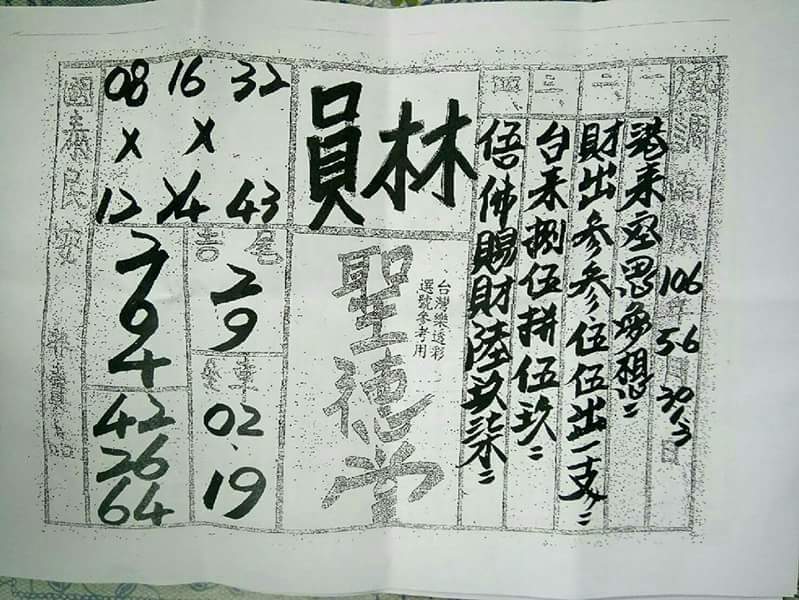 風調雨順 106年 56月 30 1.3日
一、
港來密思參想=
二、
財出參參伍伍出一支=
三、
台來捌伍拼伍玖=
四、
悟佛賜財陸玖柒=
員林
、台灣樂透彩
選號參考用
聖德堂
08 16 32
x x
12 14 43
吉尾
2
9
2
6
4
42
26
64
車
02、
19
國泰民安
非賣品